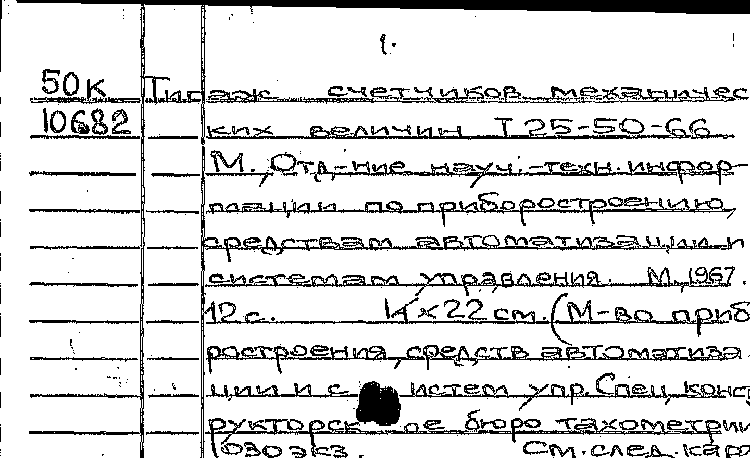 1.
50К Типаж счетчиков механичес
10682 ких величин Т 25-50-66
М., Отд-ние науч.-техн. инфор-
мации по приборостроению,
средствам автоматизации и
системам управления. М., 1967.
12 с. 14×22 см. (М-во приб
ростроения, средств автоматиза
ции и с истем упр. Спец. конс
рукторск ое бюро тахометрии
1030 экз. См. след. кар